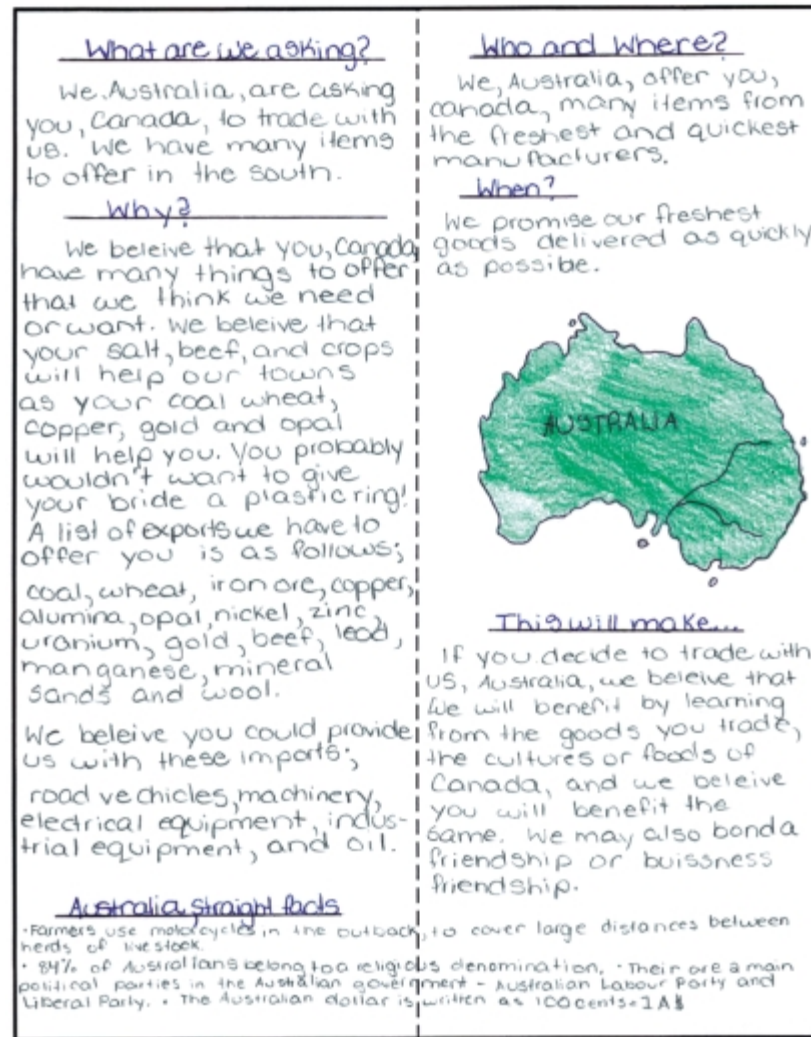 What are we asking?
We, Australia, are asking
you, Canada, to trade with
us. We have many items
to offer in the south.
Why?
We beleive that you, Canada,
have many things to offer
that we think we need
or want. We beleive that
your salt, beef, and crops
will help our towns
as your coal wheat,
copper, gold and opal
will help you. You probably
wouldn't want to give
your bride a plastic ring!
A list of exports we have to
offer you is as follows;
coal, wheat, iron ore, copper,
alumina, opal, nickel, zinc,
uranium, gold, beef, lead,
manganese, mineral
sands and wool.
We beleive you could provide
us with these imports;
road vechicles, machinery,
electrical equipment, indus-
trial equipment, and oil.
Who and Where?
We, Australia, offer you,
canada, many items from
the freshest and quickest
manufacturers.
When?
We promise our freshest
goods delivered as quickly
as possibe.
AUSTRALIA
This will make...
If you decide to trade with
us, Australia, we beleive that
we will benefit by learning
from the goods you trade,
the cultures or foods of
Canada, and we beleive
you will benefit the
same. We may also bond a
friendship or buissness
friendship.
Australia straight facts
• Farmers use motorcycles in the outback, to cover large distances between
herds of livestock.
• 84% of Australians belong to a religious denomination. • Their are 2 main
political parties in the Australian government - Australian Labour Party and
Liberal Party. • The Australian dollar is written as 100 cents = 1 A$